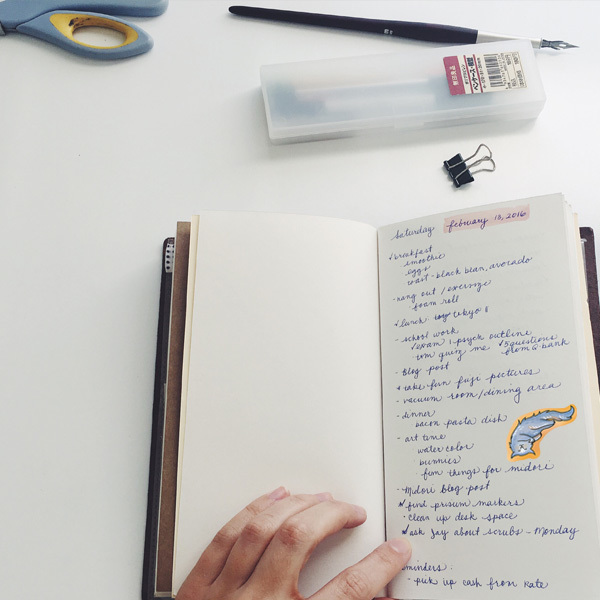 Saturday february 13, 2016
breakfast
smoothie
eggs
toast - black bean, avocado
- hang out / exercise
foam roll
lunch w/ tokyo 8
- school work
exam 1 - psych outline
5 questions from Q bank
- blog post
take fun fuji pictures
- vacuum room/dining area
- dinner
bacon pasta dish
- art time
water color
bunnies
fun things for midori
- Midori blog post
find prism markers
- clean up desk space
ask Jay about scrubs - Monday
minders:
- pick up cash from Kate